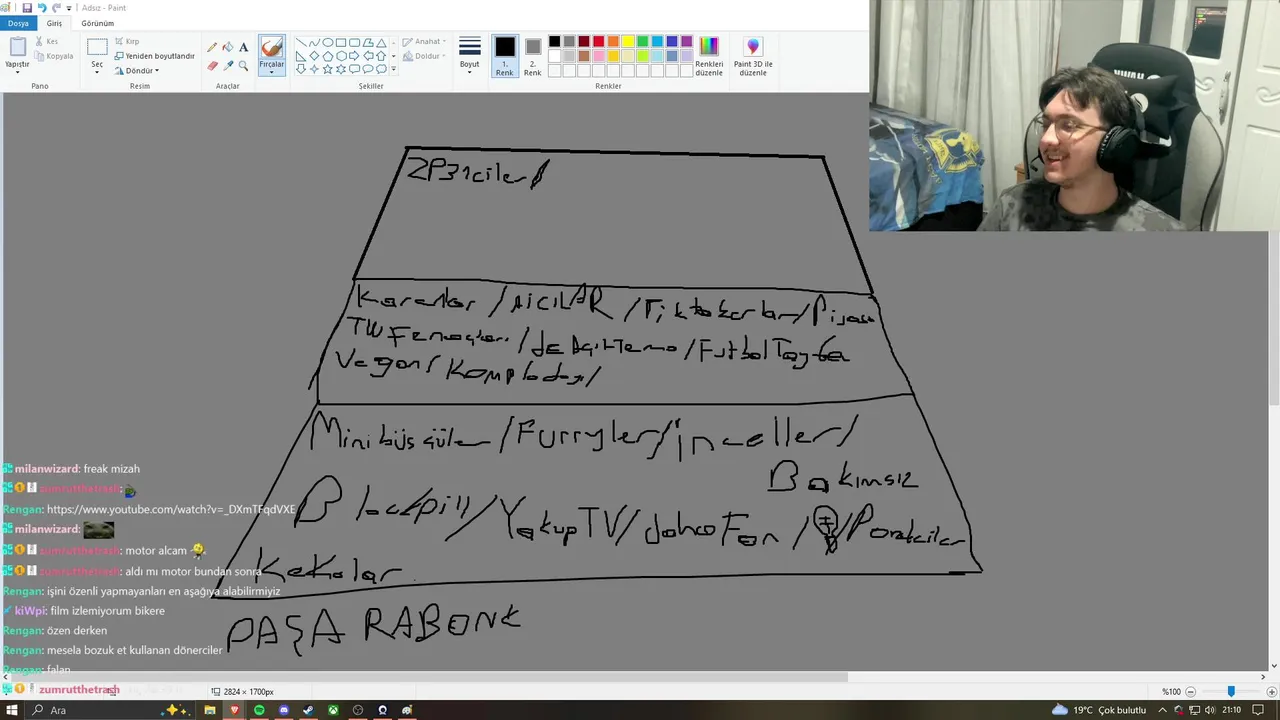 Adsız - Paint
Dosya Giriş Görünüm
Yapıştır
Kes
Kopyala
Pano
Seç
Kırp
Yeniden boyutlandır
Döndür
Resim
Araçlar
Fırçalar
Anahat
Doldur
Şekiller
Boyut
1. Renk
2. Renk
Renkleri düzenle
Paint 3D ile düzenle
Renkler
2P31ciler
/ Tiktokerlar/
TW Fenomenleri / / Futbol Tayfa
Vegan/
Minibüsçüler /Furryler/inceller/
Bakımsız
Blackpill/YakupTV/ Fan /
Kekolar
PAŞA RABONE
milanwizard: freak mizah
zumrutthetrash:
Rengan: https://www.youtube.com/watch?v=_DXmTFqdVXE
milanwizard:
zumrutthetrash: motor alcam
zumrutthetrash: aldı mı motor bundan sonra
Rengan: işini özenli yapmayanları en aşağıya alabilirmiyiz
kiWpi: film izlemiyorum bikere
Rengan: özen derken
Rengan: mesela bozuk et kullanan dönerciler
Rengan: falan
zumrutthetrash
2824 × 1700px
%100
Ara
19°C Çok bulutlu
21:10